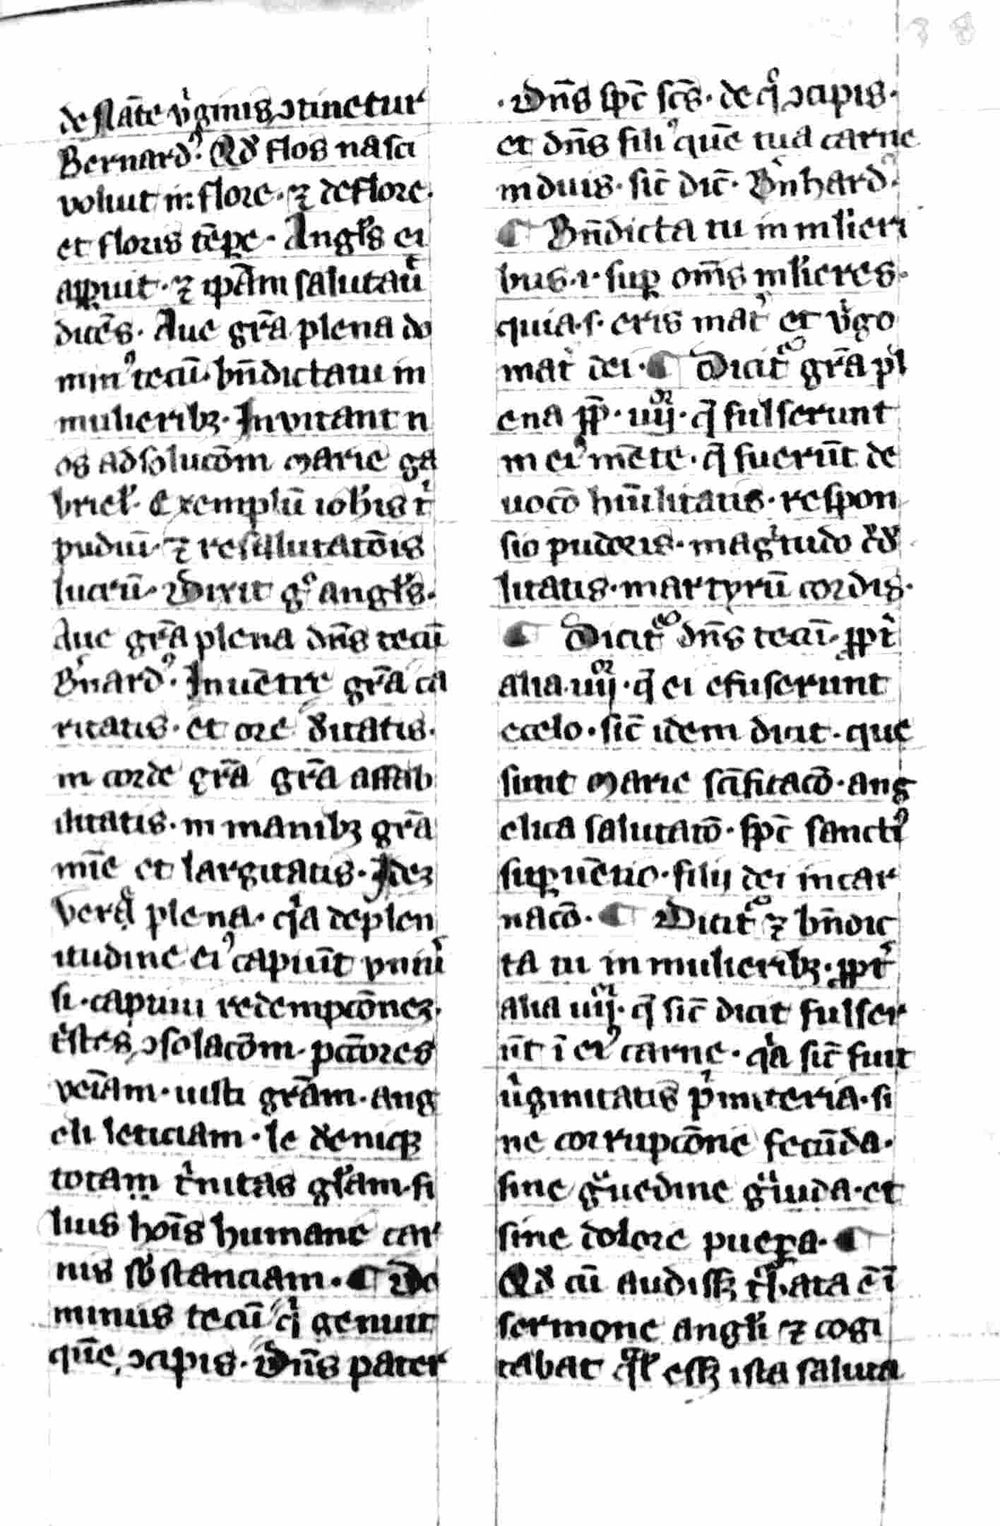 de Nat̄e ỽginis ꝯtinetur
Bernardꝰ. Qđ flos nasci
voluit in flore. ⁊ de flore.
et floris tēꝑe. Angl̄s ei
apꝑuit. ⁊ ip̄am salutauͥ
dicēs. Aue gr̄a plena do
minꝰ tecū. bn̄dicta tu in
mulieribꝫ. Inuitant n
os ad solucōm Marie ga
briel̓. Exemplū ioh̓is tͥ
pudiū. ⁊ resalutatōis
lucrū. Dixit gͦ angl̄s.
Aue gr̄a plena dn̄s tecū
Bn̓ardꝰ. In uētre gr̄a ca
ritatis. et ore ditatis.
in corde gr̄a gr̄a affab
ilitatis. in manibꝫ gr̄a
mīe et largitatis. Ideꝫ
vera plena. qͥa de plen
itudine eiꝰ capiūt vniuͥ
si. captiui redempcōneꝫ.
tͥstes ꝯsolacōm. pctōres
veīam. iusti grām. ang
eli leticiam. le deniqꝫ
totam tͥnitas gl̄am. fi
lius hoīs humane car
nis sb̄stanciam. ¶ Do
minus tecū qͥ genuit
quē ꝯcipis. Dn̄s pater
. Dn̄s sp̄c sc̄s. de qͦ ꝯcipis.
et dn̄s filiꝰ quē tua carne
induis. sic̄ dic̄. Bn̓hardꝰ.
¶ Bn̄dicta tu in ml̓ieri
bus. i. suꝑ om̄s ml̓ieres.
quia. s. eris matͥ et vͥgo
mat̓ dei. ¶ Dicit̓ gr̄a pl
ena ꝓp̄. iiijor. q̄ fulserunt
in eiꝰ mēte. q̄ fuerūt de
uocō hūilitatis. respon
sio pudoris. magͥtudo cͥdͥ
litatis. martyrū cordis.
¶ Dicit̓ dn̄s tecū. ꝓpt̓
alia iiijor. q̄ ei efuserunt
ecelo. sic̄ idem dicit. que
sunt Marie sc̄ificacō. ang
elica salutatō. sp̄c sanctꝰ
suꝑuētio. filij dei incar
nacō. ¶ Dicit̓ ⁊ bn̄dic
ta tu in mulieribꝫ. ꝓpt̓
alia iiijor. q̄ sic̄ dicit fulser
ūt ī eiꝰ carne. qͥa sic̄ fuit
vͥginitatis pͥmiteria. si
ne corrupcōne fecūda.
sine gͣuedine gͣuida. et
sine dolore pueꝑa. ¶
Qđ cū audissꝫ tͥbata ē ī
sermone angl̓i ⁊ cogi
tabat ql̄ essꝫ ista saluta